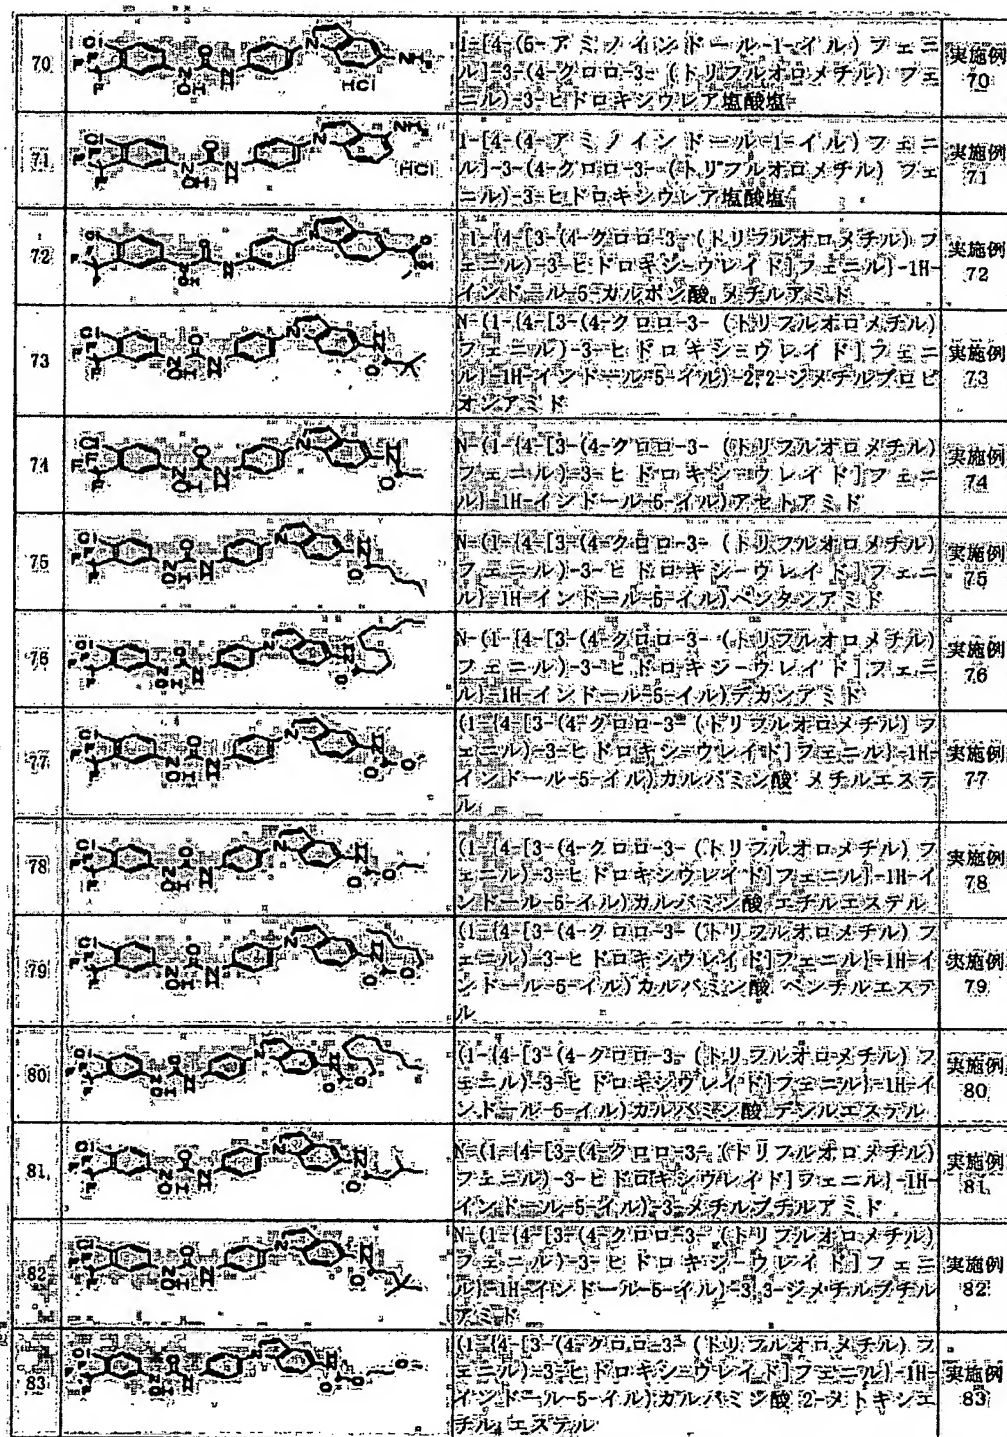 70
1-[4-(5-アミノインドール-1-イル)フェニ
ル]-3-(4-クロロ-3-(トリフルオロメチル)フェ
ニル)-3-ヒドロキシウレア塩酸塩
実施例
70
71
1-[4-(4-アミノインドール-1-イル)フェニ
ル]-3-(4-クロロ-3-(トリフルオロメチル)フェ
ニル)-3-ヒドロキシウレア塩酸塩
実施例
71
72
1-{4-[3-(4-クロロ-3-(トリフルオロメチル)フ
ェニル)-3-ヒドロキシ-ウレイド]フェニル}-1H-
インドール-5-カルボン酸 メチルアミド
実施例
72
73
N-(1-{4-[3-(4-クロロ-3-(トリフルオロメチル)
フェニル)-3-ヒドロキシ-ウレイド]フェニ
ル}-1H-インドール-5-イル)-2,2-ジメチルプロピ
オンアミド
実施例
73
74
N-(1-{4-[3-(4-クロロ-3-(トリフルオロメチル)
フェニル)-3-ヒドロキシ-ウレイド]フェニ
ル}-1H-インドール-5-イル)アセトアミド
実施例
74
75
N-(1-{4-[3-(4-クロロ-3-(トリフルオロメチル)
フェニル)-3-ヒドロキシ-ウレイド]フェニ
ル}-1H-インドール-5-イル)ペンタンアミド
実施例
75
76
N-(1-{4-[3-(4-クロロ-3-(トリフルオロメチル)
フェニル)-3-ヒドロキシ-ウレイド]フェニ
ル}-1H-インドール-5-イル)デカンアミド
実施例
76
77
(1-{4-[3-(4-クロロ-3-(トリフルオロメチル)フ
ェニル)-3-ヒドロキシ-ウレイド]フェニル}-1H-
インドール-5-イル)カルバミン酸 メチルエステ
ル
実施例
77
78
(1-{4-[3-(4-クロロ-3-(トリフルオロメチル)フ
ェニル)-3-ヒドロキシウレイド]フェニル}-1H-イ
ンドール-5-イル)カルバミン酸 エチルエステル
実施例
78
79
(1-{4-[3-(4-クロロ-3-(トリフルオロメチル)フ
ェニル)-3-ヒドロキシウレイド]フェニル}-1H-イ
ンドール-5-イル)カルバミン酸 ペンチルエステ
ル
実施例
79
80
(1-{4-[3-(4-クロロ-3-(トリフルオロメチル)フ
ェニル)-3-ヒドロキシウレイド]フェニル}-1H-イ
ンドール-5-イル)カルバミン酸 デシルエステル
実施例
80
81
N-(1-{4-[3-(4-クロロ-3-(トリフルオロメチル)
フェニル)-3-ヒドロキシウレイド]フェニル}-1H-
インドール-5-イル)-3-メチルブチルアミド
実施例
81
82
N-(1-{4-[3-(4-クロロ-3-(トリフルオロメチル)
フェニル)-3-ヒドロキシ-ウレイド]フェニ
ル}-1H-インドール-5-イル)-3,3-ジメチルブチル
アミド
実施例
82
83
(1-{4-[3-(4-クロロ-3-(トリフルオロメチル)フ
ェニル)-3-ヒドロキシ-ウレイド]フェニル}-1H-
インドール-5-イル)カルバミン酸 2-メトキシエ
チル エステル
実施例
83